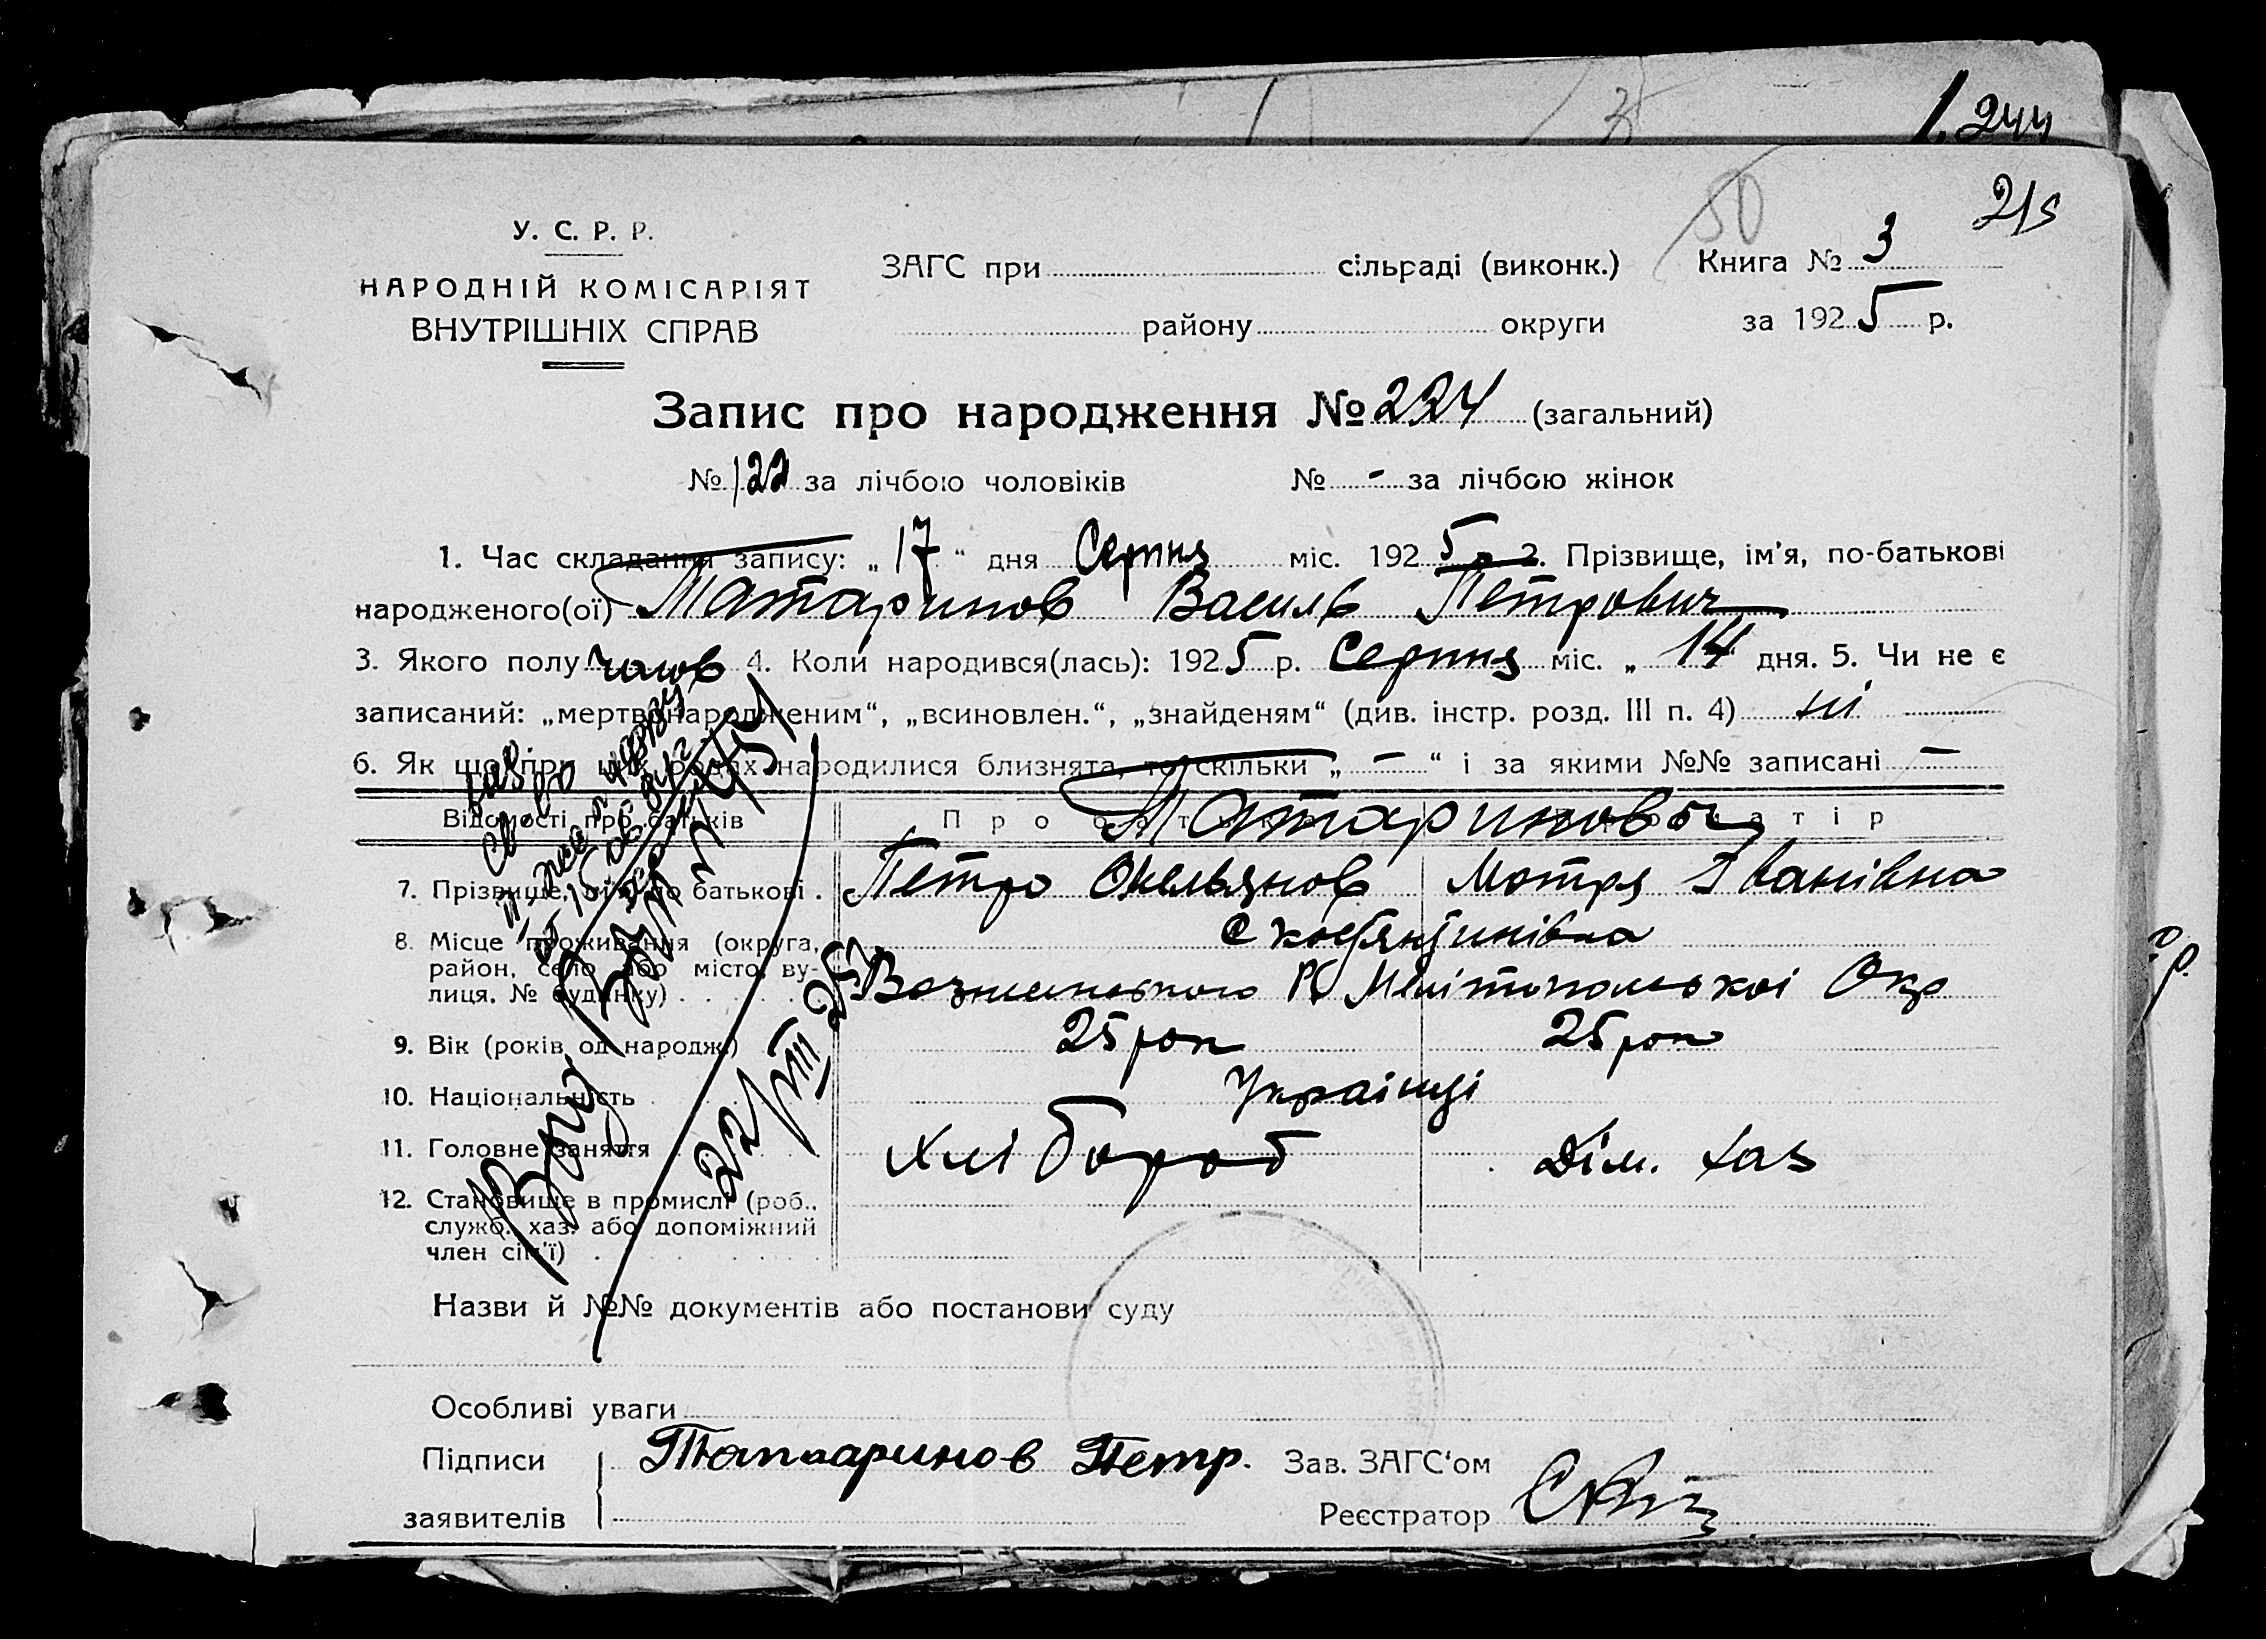 1. 244
50
215
У. С. Р. Р.
НАРОДНІЙ КОМІСАРІЯТ
ВНУТРІШНІХ СПРАВ
ЗАГС при сільраді (виконк.)
району округи
Книга № 3
за 1925 р.
Запис про народження № 224 (загальний)
№ 122 за лічбою чоловіків № - за лічбою жінок
1. Час складання запису: „ 17 “ дня Серпня міс. 1925 р. 2. Прізвище, ім'я, по-батькові
народженого(ої) Татаринов Василь Петрович
3. Якого полу чолов 4. Коли народився(лась): 1925 р. Серпня міс. „ 14 “ дня. 5. Чи не є
записаний: „мертвонародженим“, „всиновлен.“, „знайденям“ (див. інстр. розд. III п. 4) ні
6. Як що при цих родах народилися близнята, то скільки „ — “ і за якими №№ записані —
Відомості про батьків Про батька Про матір
Татариновы
7. Прізвище, ім'я, по батькові . Петро Омельянов Мотря Іванівна
8. Місце проживання (округа,
район, село або місто, ву-
лиця. № будинку)
с Костянтинівка
Мелітопольскоі Окр
9. Вік (років од народж.) 25 рок 25 рок
10. Національність Українці
11. Головне заняття Хлібороб Дім. хаз
12. Становище в промислі (роб.,
служб., хаз. або допоміжний
член сім'ї)
22/VIII
Назви й №№ документів або постанови суду
Особливі уваги
Підписи
заявителів
Татаринов Петр.
Зав. ЗАГС'ом
Реєстратор